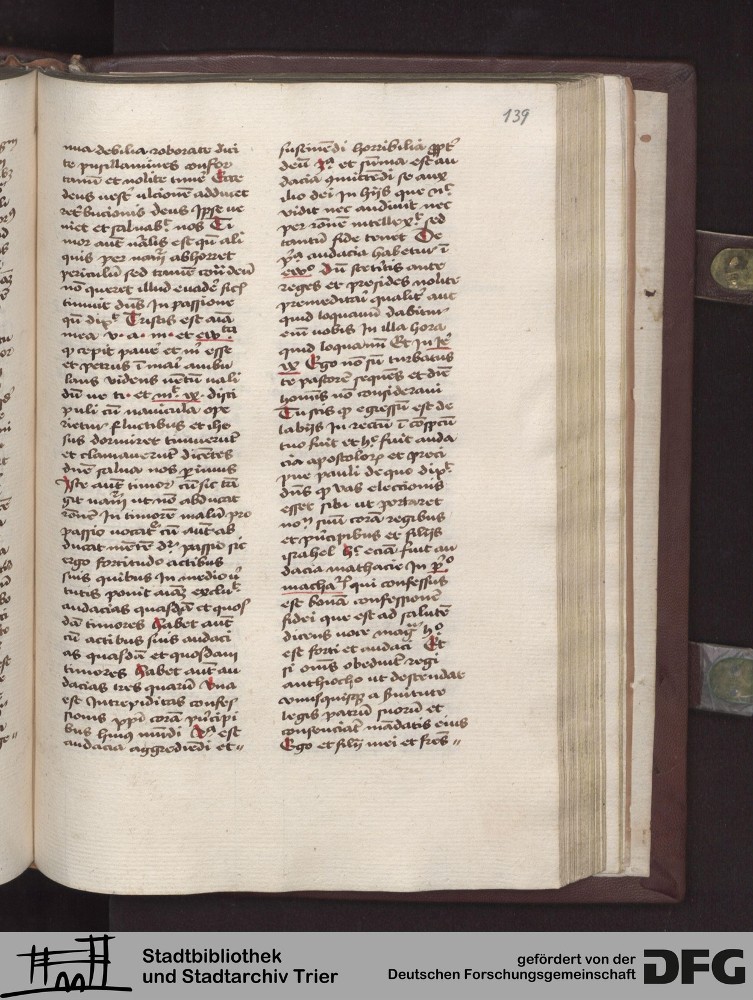 139
nua debilia roborate dici
te pusillanimes confor
tamini et nolite timē Ecce
deus vest ulcionē adducet
ret̄bucionis deus Ipse ve
niet et saluab nos Ti
mor aut nālis est qn̄ ali
quis per naīn abhorret
periculū sed tamē deū
nō queret illud euadē sic
timuit dns̄ In passione
qn̄ dix Tristis est aīa
mea v· a· m· et
cepit pauē et esse
et petrus ī maī ambu
lans videns ventū uali
dū ve ti· et disci
puli cū nauicula ope
rietur fluctibus et ihe
sus dormiret timuerūt
et clamauerūt dicētes
dnē salua nos p̄imus
Iste aut timor cū sic tā
git naīn ut nō abducat
ronē In timorē malū pro
passio vocat cū aut ab
ducat mētē dr̄ passio sic
ergo fortitudo actibus
suis quibus In medio
tutis ponit aīaȝ exclu
audacias quasdā et quos
dā timores Habet aut
cū actibus suis audaci
as quasdā et quosdam
timores Habet aut au
dacias tres quarū Vna
est Intrepiditas confes
sionis xp̄i corā pn̄cipi
bus huius mūdi est
audacia aggrediēdi et
sustinēdi horribilia
deū et sūma est au
dacia quitttēdi se aux
ilio dei In hijs que
vidit nec audiuit nec
per ronē intellex sed
tantū fide tenet De
audacia habetur ī
Dū stetitis ante
reges et presides nolite
premeditari qualit aut
quid loquamī dabitur
enī vobis In illa hora
quid loquamī Et In
Ego nō sū turbatus
te pastorē sequēs et diē
hominis nō consideraui
Tu scis quod egressū est de
labijs In rectū ī cōspcū
tuo fuit et fuit auda
cia apostolorum et preci
pue pauli de quo dix
dns̄ vas eleccionis
esset sibi ut portaret
suū corā regibus
et pn̄cipibus et filijs
israhel eciā fuit au
dacia mathacie In
macha qui confessus
est bonā confessionē
fidei que est ad salutē
dicens voce mag
est forti et audaci Et
si omīs obediūt regi
anthiocho ut descendat
vnusquisque a suitute
legis patrū suorū et
consenciat mādatis eius
Ego et filij mei et frēs
Stadtbibliothek
und Stadtarchiv Trier
gefördert von der
Deutschen Forschungsgemeinschaft
DFG